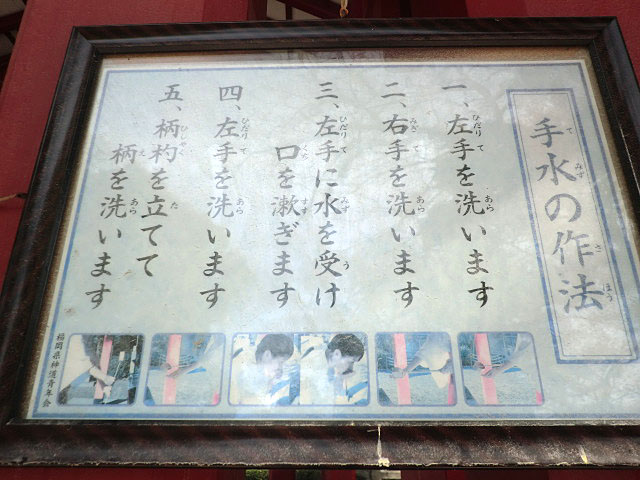 手水の作法
一、左手を洗います
二、右手を洗います
三、左手に水を受け
口を漱ぎます
四、左手を洗います
五、柄杓を立てて
柄を洗います
福岡県神道青年会